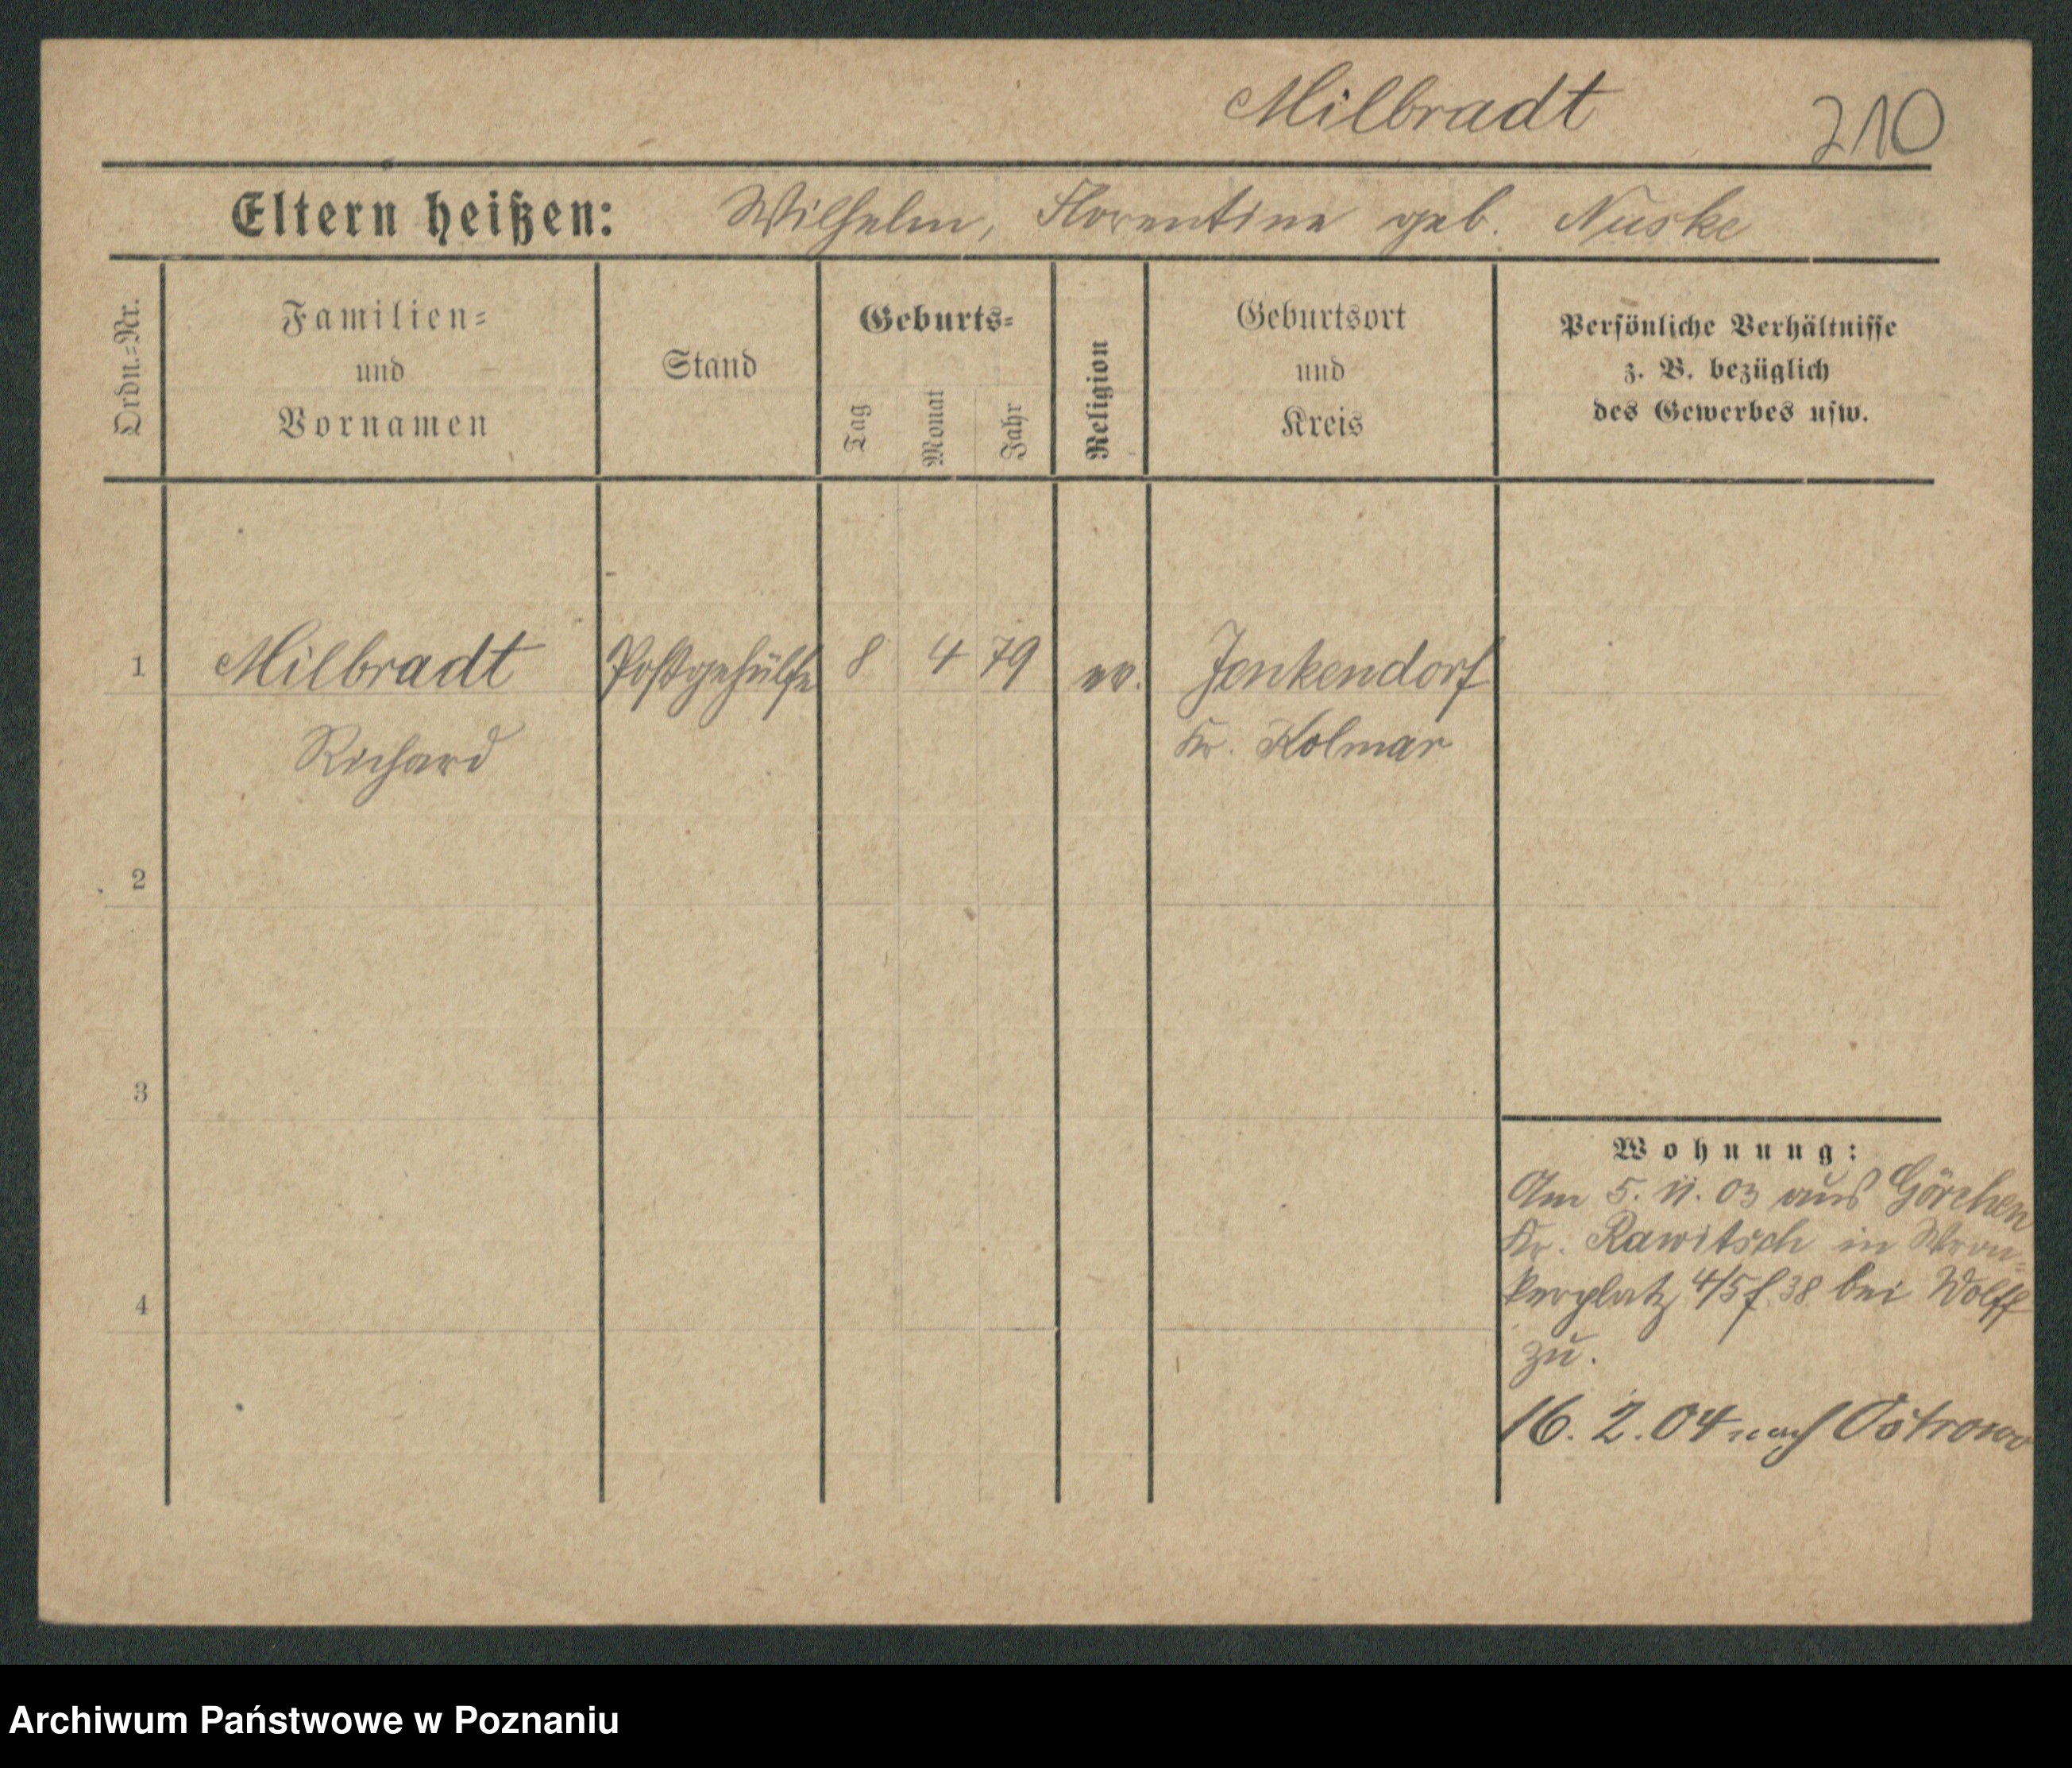 Milbradt 210
Eltern heißen: Wilhelm, Florentine geb. Nuske
Ordn.=Nr.
Familien=
und
Vornamen
Stand
Geburts=
Tag
Monat
Jahr
Religion
Geburtsort
und
Kreis
Persönliche Verhältnisse
z. B. bezüglich
des Gewerbes usw.
1 Milbradt Postgehülfe 8 4 79 ev. Jankendorf
Richard Kr. Kolmar
2
3
4
Wohnung:
Am 5. 11. 03 aus Görchen
Kr. Rawitsch in Wron=
kerplatz 4/5 f. 38 bei Wolff
zu.
16. 2. 04 nach Ostrowo
Archiwum Państwowe w Poznaniu